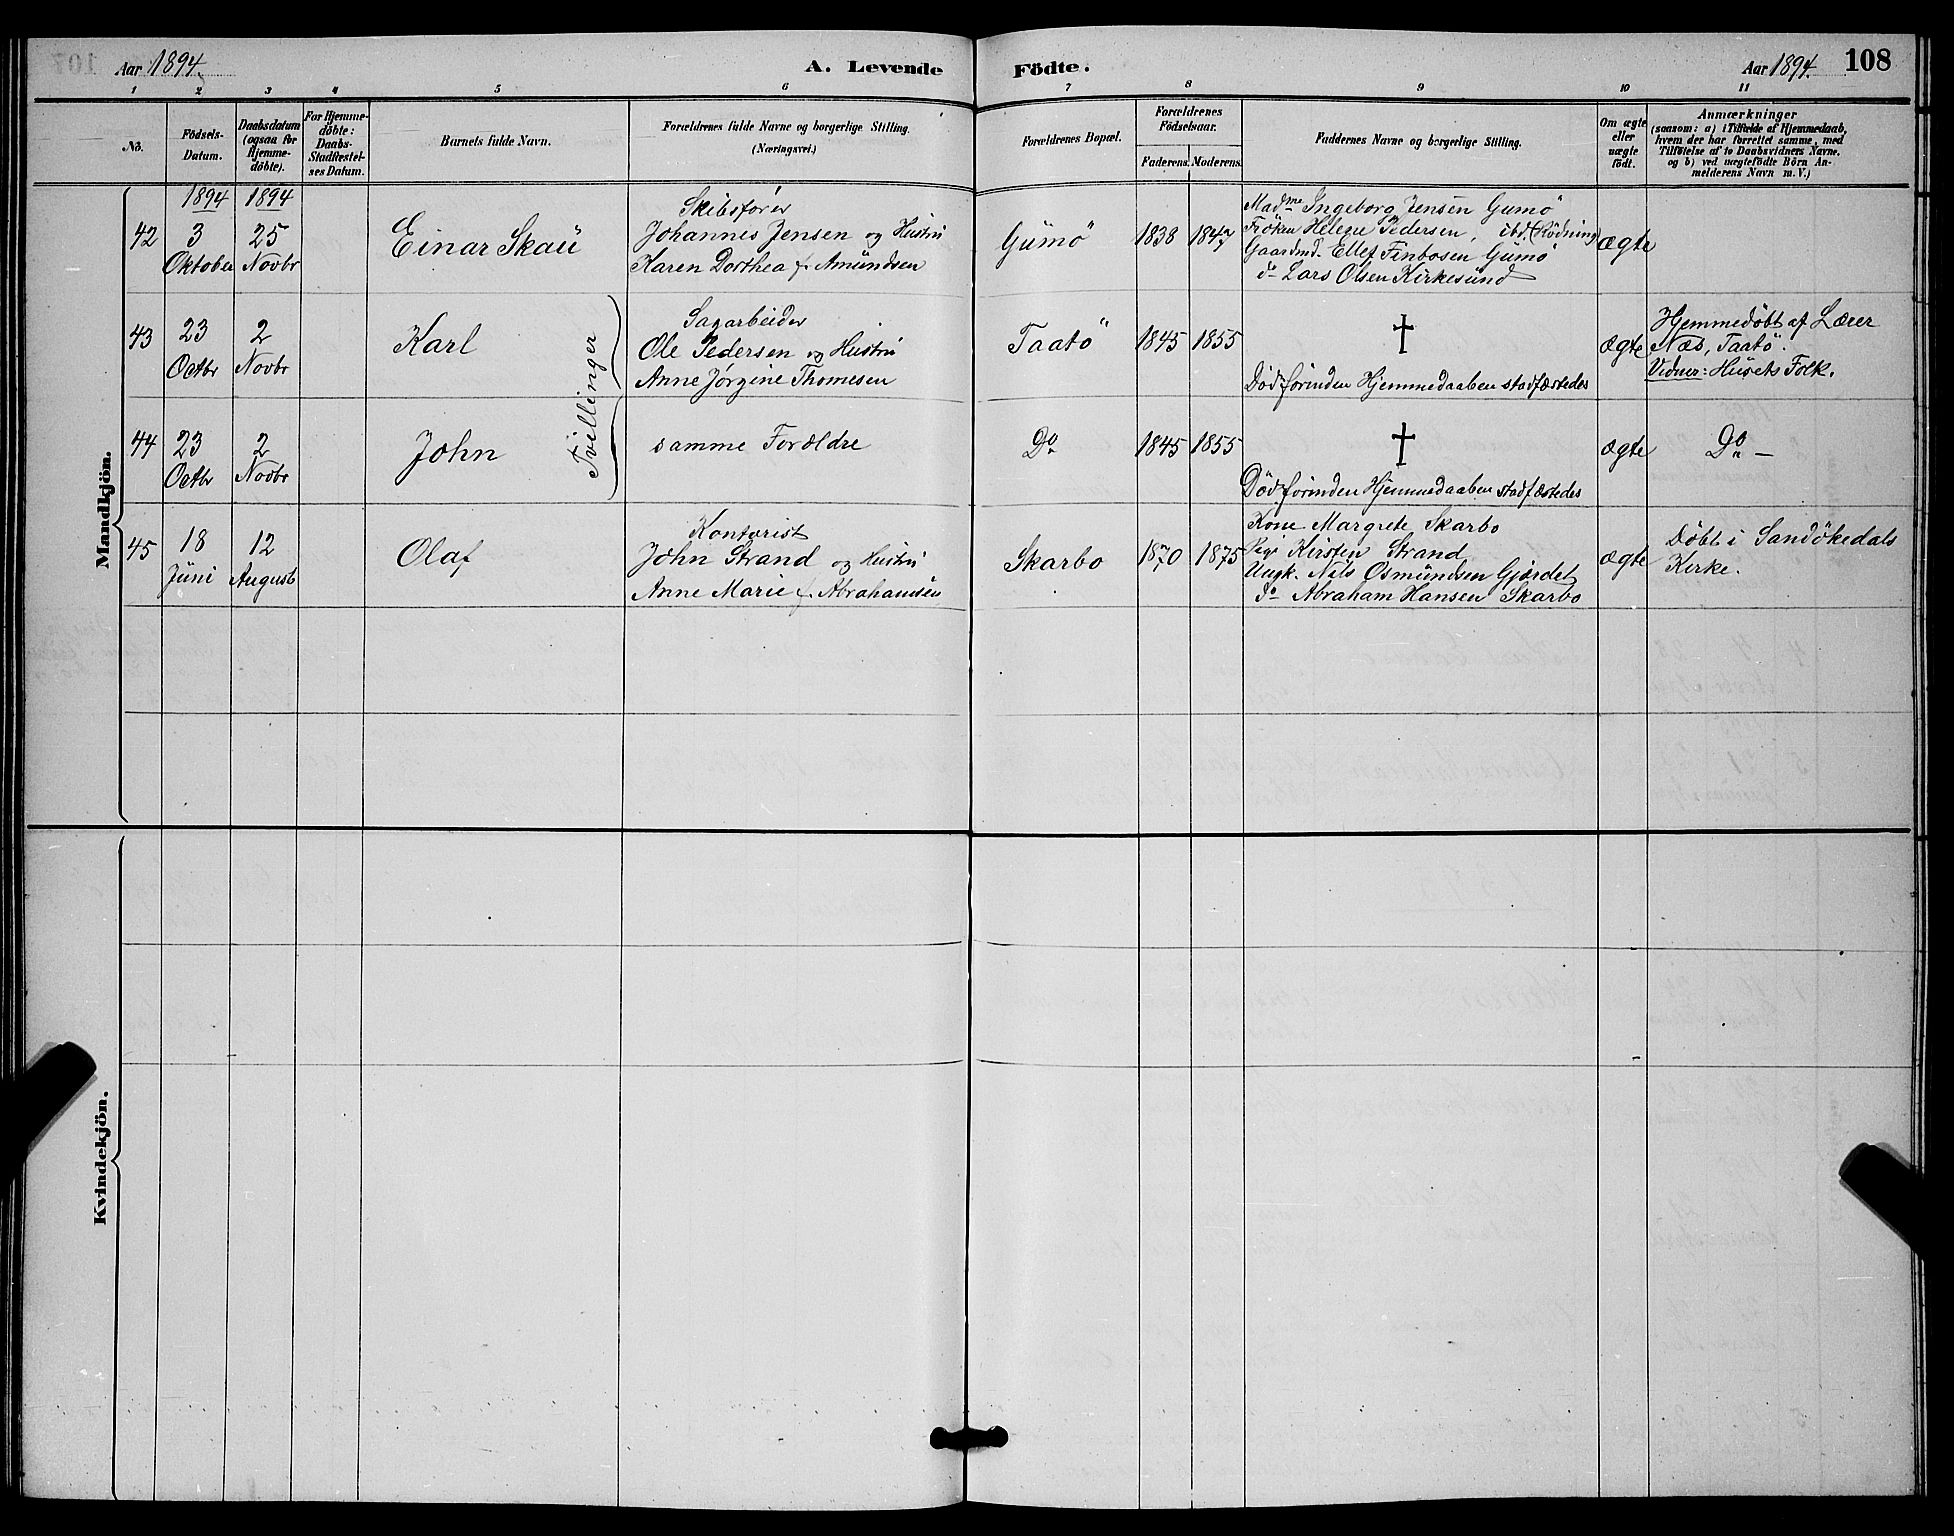 Aar 1894. A. Levende Födte. Aar 1894. 108
1 2 3 4 5 6 7 8 9 10 11
No.
Födsels-
Datum.
Daabsdatum
(ogsaa for
Hjemme-
döbte).
For Hjemme-
döbte:
Daabs-
Stadfæstel-
ses Datum.
Barnets fulde Navn.
Forældrenes fulde Navne og borgerlige Stilling.
(Næringsvei.)
Forældrenes Bopæl.
Forældrenes
Födselsaar.
Faderens. Moderens.
Faddernes Navne og borgerlige Stilling.
Om ægte
eller
uægte
födt.
Anmærkninger
(saasom: a) i Tilfælde af Hjemmedaab,
hvem der har forrettet samme, med
Tilföielse af to Daabsvidners Navne,
og b) ved uægtefödte Börn An-
melderens Navn m. V.)
Mandkjön.
1894 1894
42
3
Oktober
25
Novbr
Einar Skau
Skibsfører
Johannes Jensen og Hustru
Karen Dorthea f. Amundsen
Gumö
1838 1847
Madme Ingeborg Jensen Gumö
Frøken Helene Pedersen, ibd (Rödning)
Gaardmd. Ellef Finbosen Gumö
do Lars Olsen Kirkesund
ægte
43
23
Octbr
2
Novbr
Karl
Tvillinger
Sagarbeider
Ole Pedersen og Hustru
Anne Jørgine Thomesen
Taatö
1845 1855
†
Död forinden Hjemmedaaben stadfæstedes
ægte
Hjemmedöbt af Lærer
Næs, Taatö.
Vidner: Husets Folk.
44
23
Octbr
2
Novbr
John
samme Forældre
Do
1845 1855
†
Död forinden Hjemmedaaben stadfæstedes
ægte
Do —
45
18
Juni
12
August
Olaf
Kontorist
John Strand og Hustru
Anne Marie f. Abrahamsen
Skarbo
1870 1875
Kone Margrete Skarbo
Pige Kirsten Strand
Ungk. Nils Osmundsen Gjördet
do Abraham Hansen Skarbo
ægte
Döbt i Sandökedals
Kirke.
Kvindekjön.